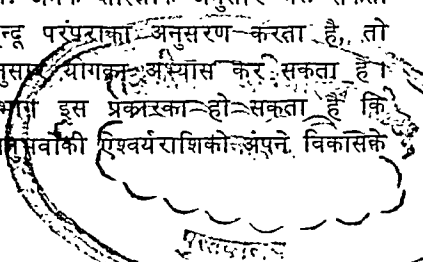 अनुसार
न्दू परंपराका अनुसरण करता है, तो
नुसार योगका अभ्यास कर सकता है।
भाग इस प्रकारका हो सकता है कि
नुभवोंकी ऐश्वर्यराशिको अपने विकासके
पुस्तकालय